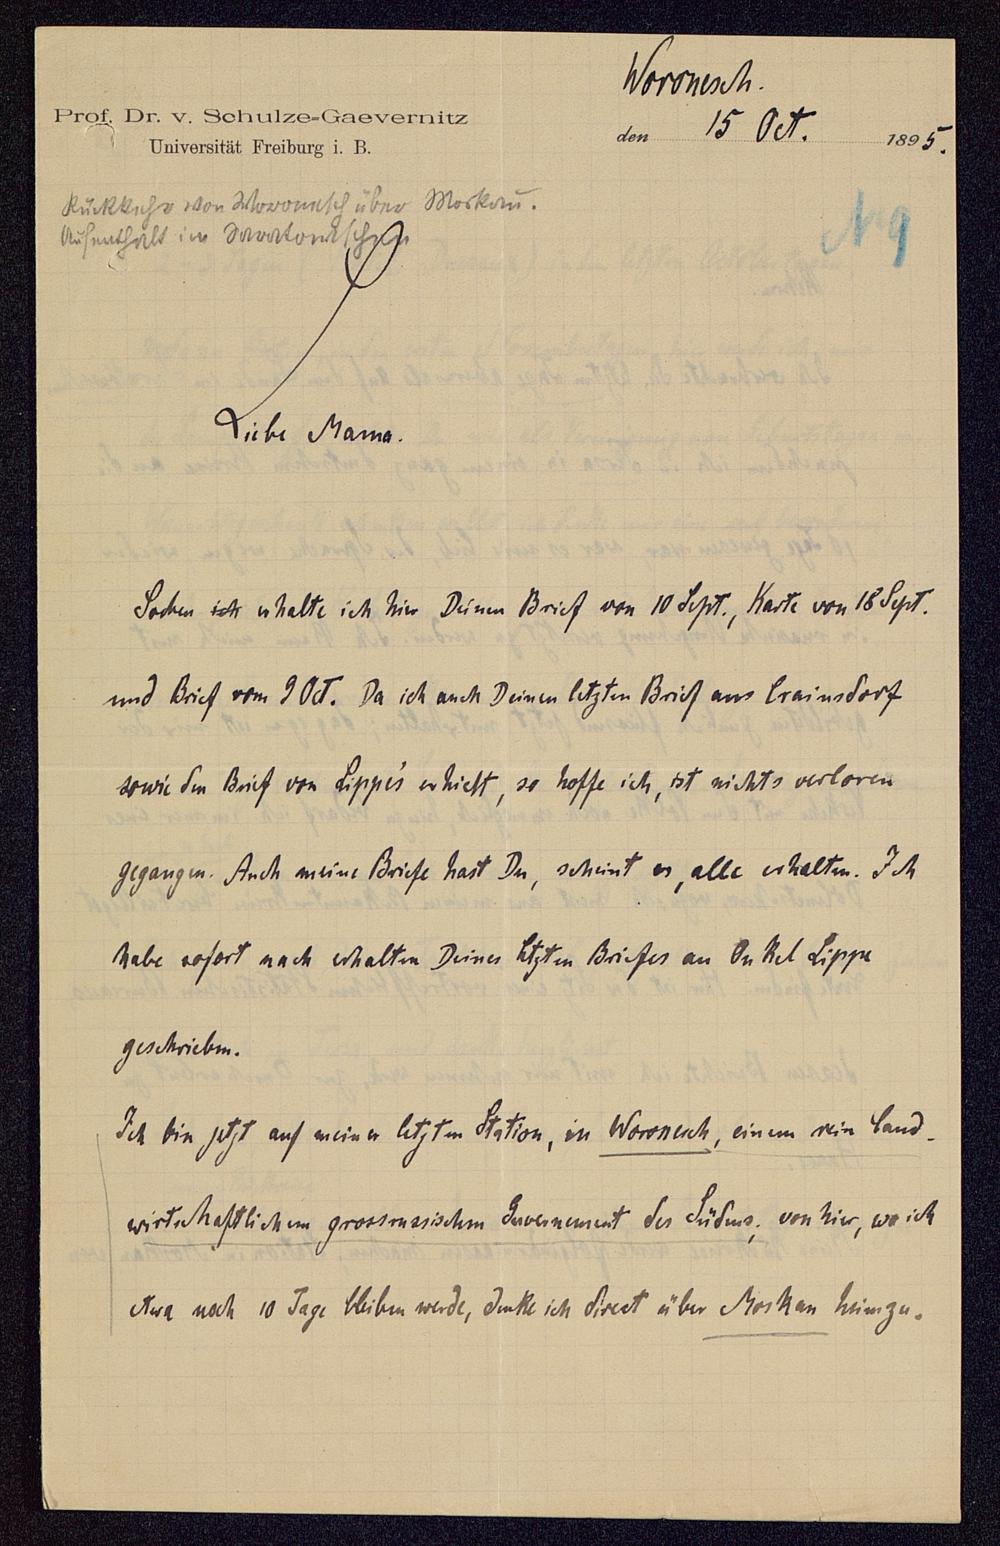 Woronesch.
Prof. Dr. v. Schulze-Gaevernitz
Universität Freiburg i. B.
den 15 Oct. 1895.
Rückkehr von Woronesch über Moskau.
Aufenthalt in
No 9
Liebe Mama.
Soeben ich erhalte ich hier Deinen Brief von 10 Sept., Karte von 18 Sept.
und Brief vom 9 Oct. Da ich auch Deinen letzten Brief aus Crainsdorf
sowie den Brief von Lippe's erhielt, so hoffe ich, ist nichts verloren
gegangen. Auch meine Briefe hast Du, scheint es, alle erhalten. Ich
habe sofort nach erhalten Deines letzten Briefes an Onkel Lippe
geschrieben.
Ich bin jetzt auf meiner letzten Station, in Woronesch, einem rein land-
wirtschaftlichem grossrussischem Gouvernement des Südens, von hier, wo ich
etwa noch 10 Tage bleiben werde, denke ich direct über Moskau heimzu-